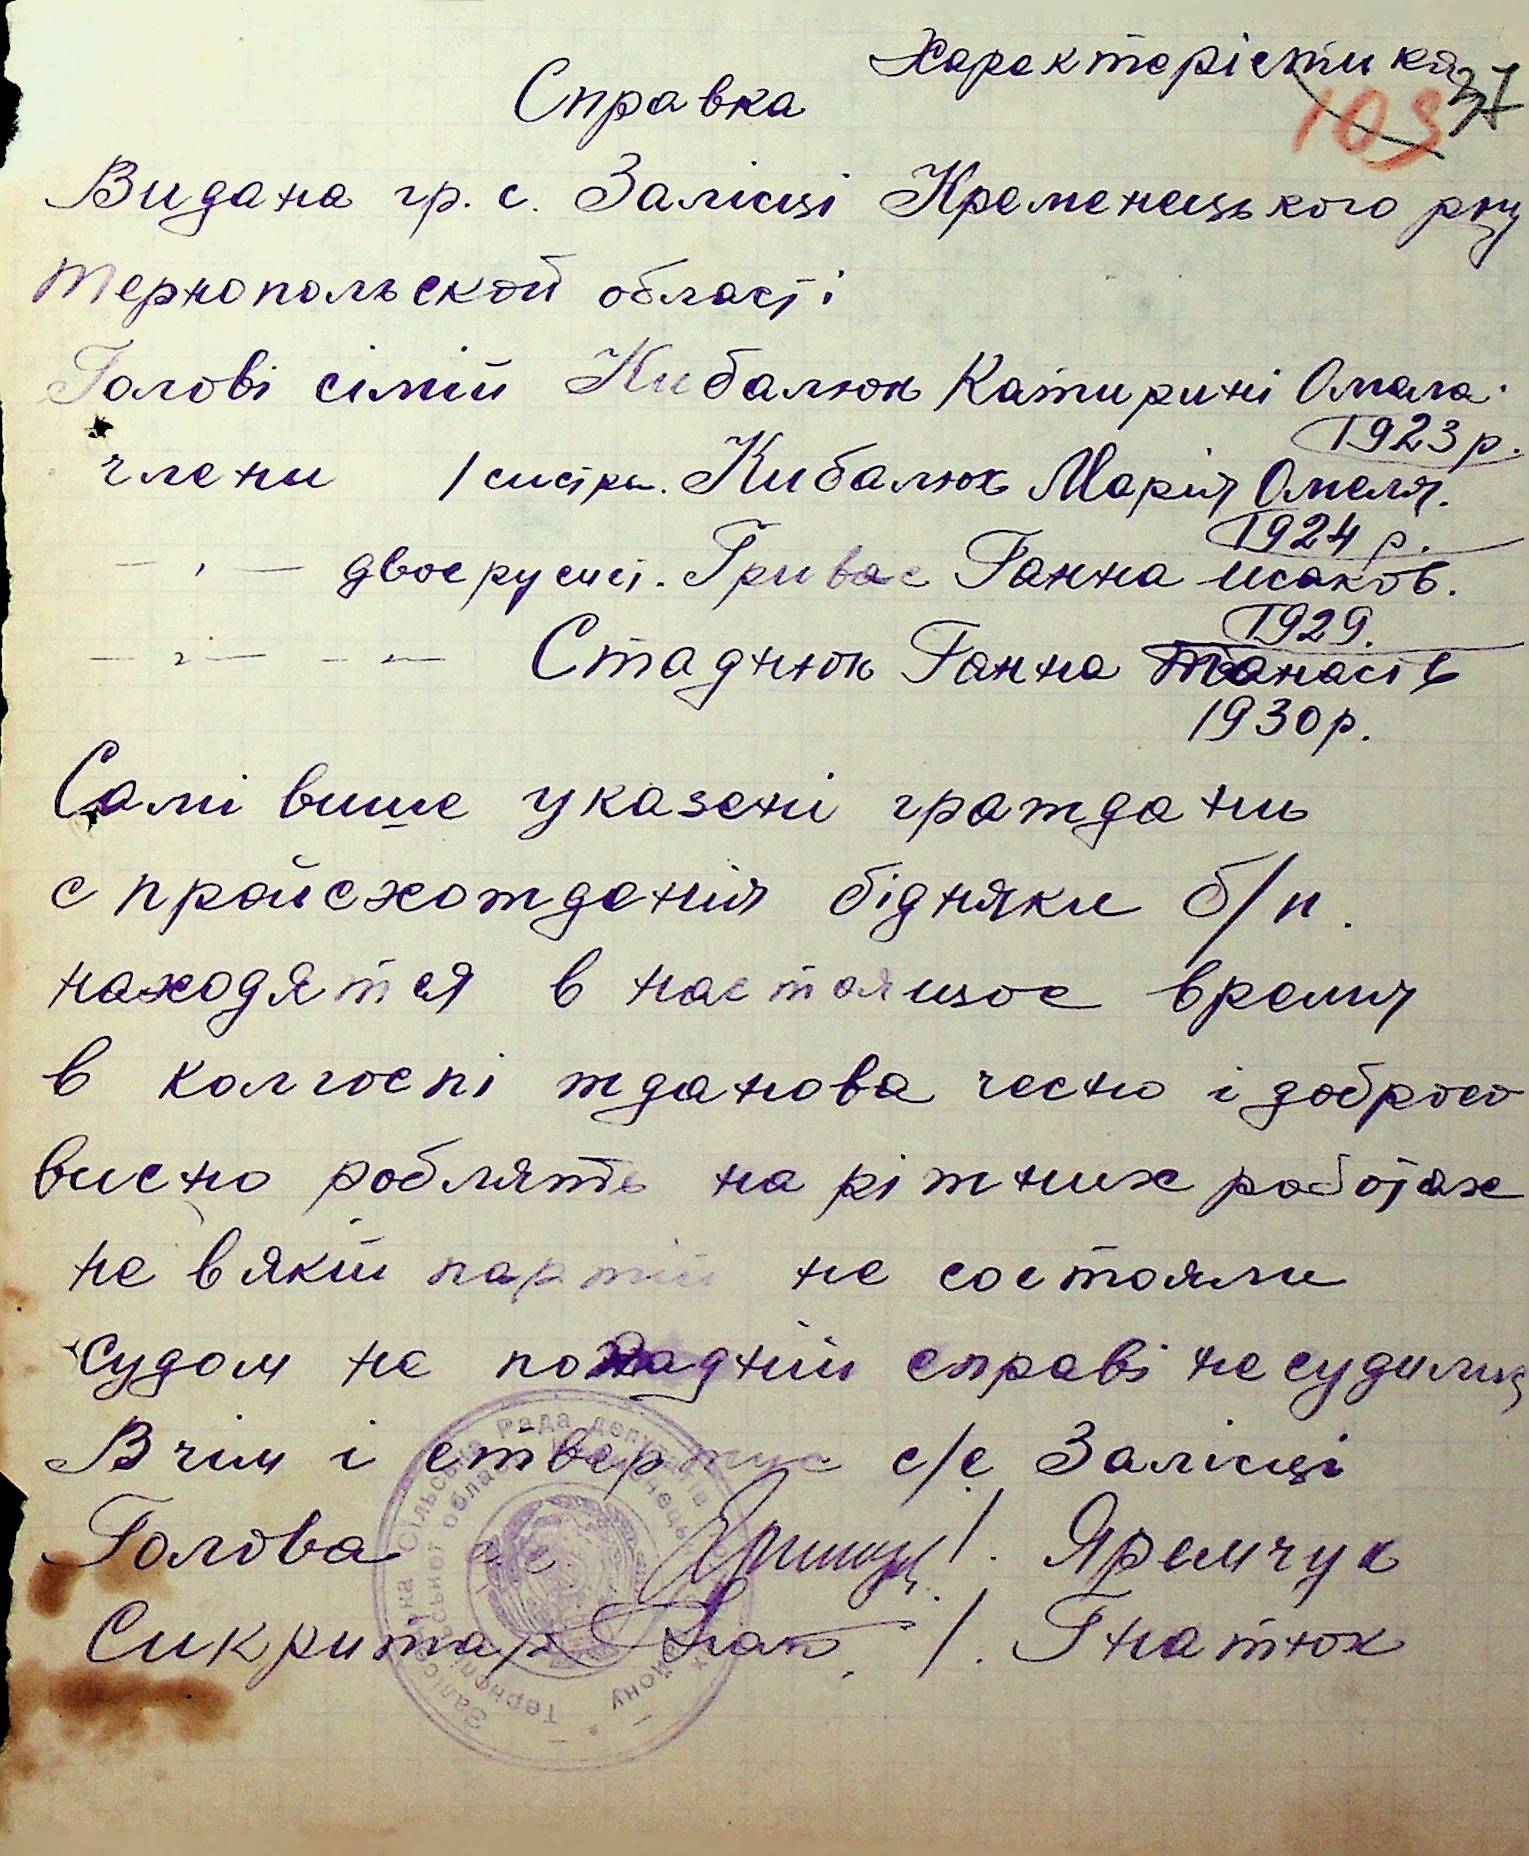 Характерістика
37
103
Справка
Видана гр. с. Залісці Кременецького р-ну
Тернопольской області
Голові сімїї Кибалюк Катирині Омеля.
1923 р.
члени / систра. Кибалюк Марія Омеля.
1924 р.
— „ — двоерусист. Гривас Ганна исаков.
1929.
— „ — - „ — Стаднюк Ганна Танасів
1930 р.
Самі више указені граждани
с происхождения бідняки б/п.
находятся в настоящое время
в колгоспі жданова чесно і добросо
висно роблять на ріжних работах
не в якій партії не состояли
судом не по жадній справі не судились
В чім і ствержує с/с Залісці
Голова с/с. / . Яремчук
Сикритар / . Гнатюк
Залісецька Сільська Рада депутатів